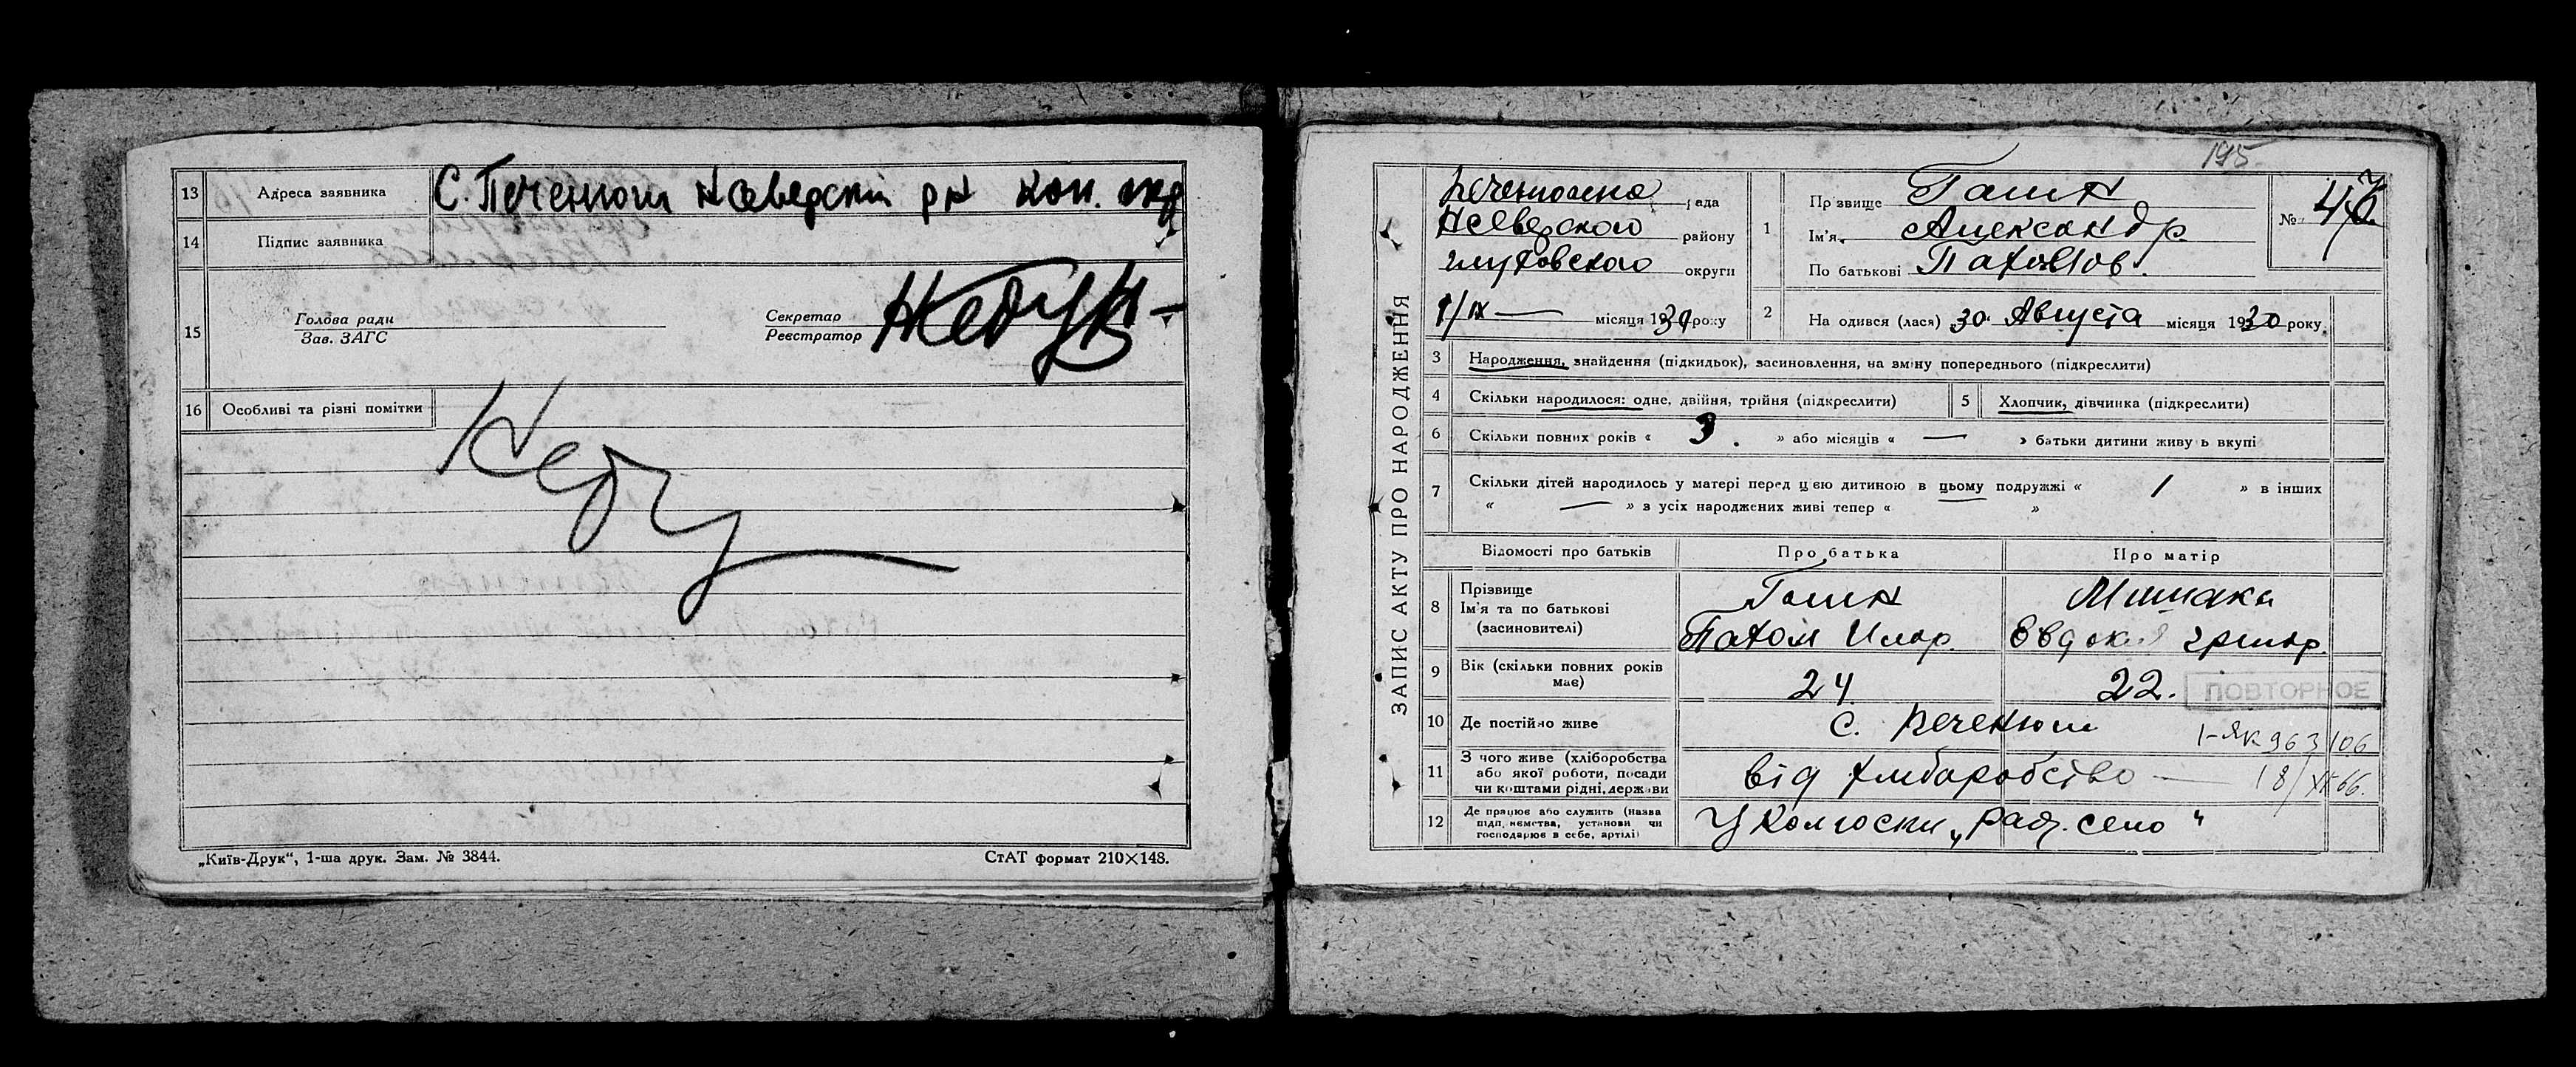 13 Адреса заявника С. Печенюги Нсеверский рн кон. окр
14 Підпис заявника
15 Голова ради
Зав. ЗАГС
Секретар
Реєстратор
16 Особливі та різні помітки
„Київ-Друк“, 1-ша друк. Зам. № 3844.
СтАТ формат 210×148.
195
ЗАПИС АКТУ ПРО НАРОДЖЕННЯ
рада
Нсеверского району
глуховского округи
1/IX — місяця 1930 року
1 Прізвище
Ім'я Александр
По батькові Пахомов.
№ 47
2 Народився (лася) 30 Августа місяця 1930 року.
3 Народження, знайдення (підкидьок), засиновлення, на зміну попереднього (підкреслити)
4 Скільки народилося: одне, двійня, трійня (підкреслити)
5 Хлопчик, дівчинка (підкреслити)
6 Скільки повних років « 3. » або місяців « — » батьки дитини живуть вкупі
7 Скільки дітей народилось у матері перед цією дитиною в цьому подружжі « 1 » в інших
« — » з усіх народжених живі тепер « »
Відомості про батьків
Про батька
Про матір
8 Прізвище
Ім'я та по батькові
(засиновителі)
Пахом Игор.
Евдокия григор.
9 Вік (скільки повних років має)
24
22.
ПОВТОРНОЕ
10 Де постійно живе
с. Печенюги
I-ЯК 963106
11 З чого живе (хліборобства
або якої роботи, посади
чи коштами рідні, держави
від хліборобство —
18/XI 66.
12 Де працює або служить (назва
підприємства, установи чи
господарює в себе, артілі)
У Колгоспи „рад. село“